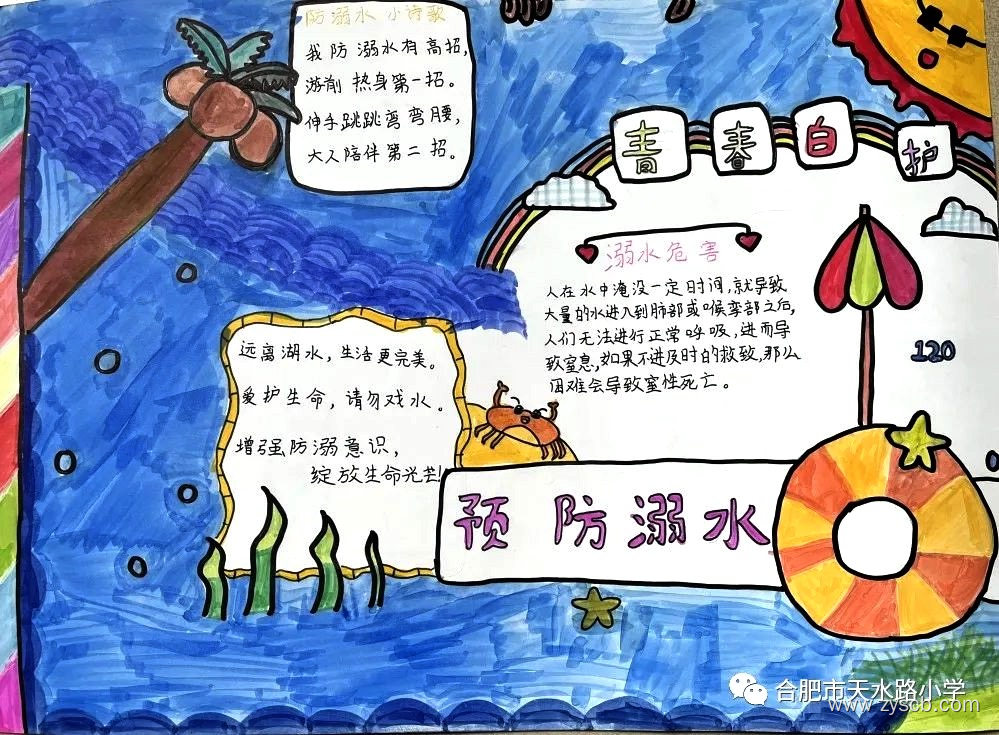 防溺水 小诗歌
我防溺水有高招,
游前热身第一招。
伸手跳跳弯弯腰,
大人陪伴第二招。
青春自护
溺水危害
人在水中淹没一定时间,就导致
大量的水进入到肺部或喉挛部之后,
人们无法进行正常呼吸,进而导
致窒息,如果不进及时的救致,那么
困难会导致窒性死亡。
120
远离湖水,生活更完美。
爱护生命,请勿戏水。
增强防溺意识,
绽放生命光芒!
预防溺水
合肥市天水路小学
www.zyscb.com